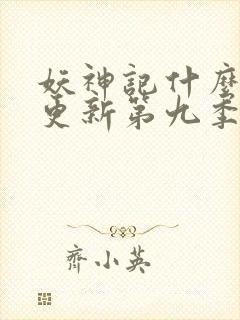 妖神記什麼
更新第九季
齊小英